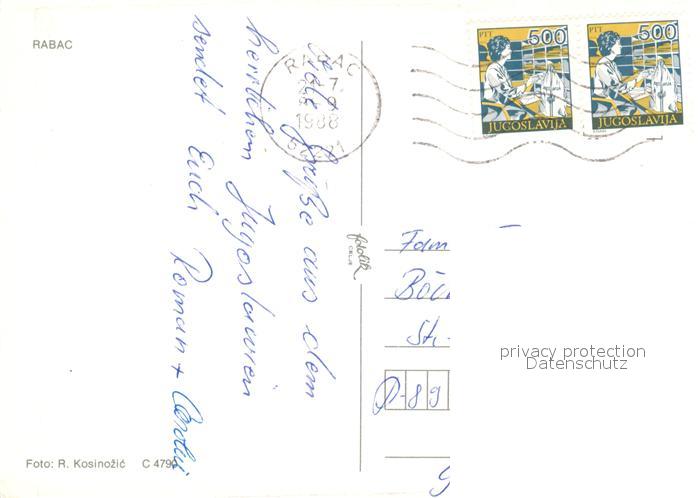 RABAC
RABAC
1988
PTT 500
JUGOSLAVIJA
PTT 500
JUGOSLAVIJA
Viele Grüße aus dem
herrlichen Jugoslawien
sendet Euch Roman +
fotolik
CELJE
Fam
St.
D-89
privacy protection
Datenschutz
Foto: R. Kosinožić C 4790